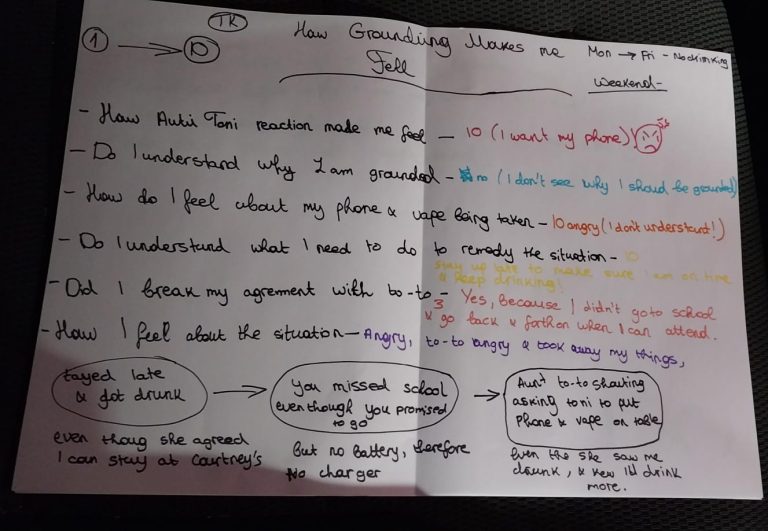 TK
① → 10
How Groundiing Makes me Fell
Mon → Fri - No drinking
Weekend-
- How Auti Toni reaction made me feel - 10 (I want my phone)!
- Do I understand why I am grounded - no (I don't see why I should be grounded)
- How do I feel about my phone & vape being taken - 10 angry (I don't understant!)
- Do I understand what I need to do to remedy the situation - 10
stay up late to make sure I am on time
& keep drinking!
- Did I break my agreement with to-to - Yes, because I didn't go to school
3
& go back & forth on when I can attend.
- How I feel about the situation - Angry, to-to angry & took away my things,
tayed late
& got drunk
→
You missed school
even though you promised
to go
→
Aunt to-to shouting
asking toni to put
phone & vape on table
even thoug she agreed
I can stay at Courtney's
But no battery, therefore
No charger
Even the she saw me
drunk, & kew I'd drink
more.